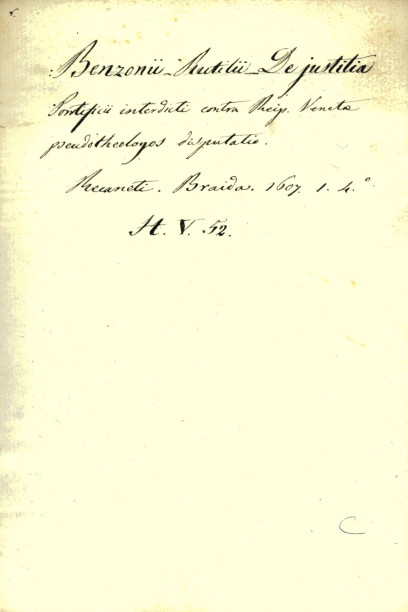 Benzonii Rutilii De justitia
Pontificii interdicti contra Reip. Venetæ
pseudotheologos disputatio.
Recaneti. Braida. 1607. 1. 4.°
H. V. 52.
C